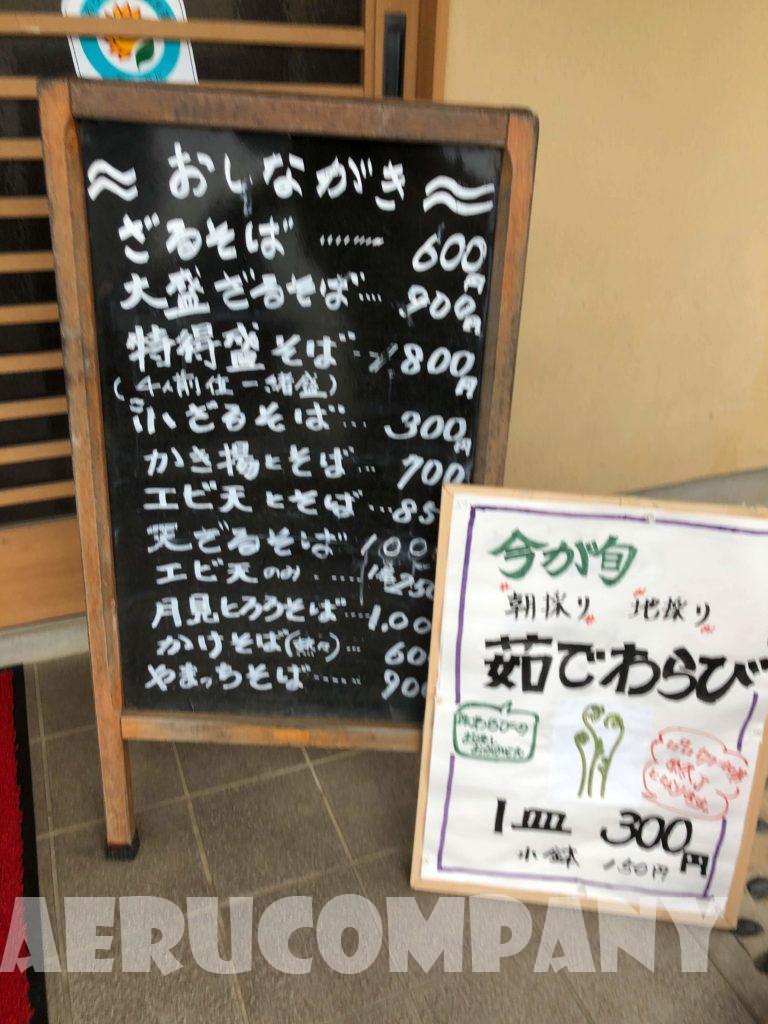 ≈ おしながき ≈
ざるそば ……… 600円
大盛ざるそば… 900円
特得盛そば… 1,800円
(4人前位一緒盛)
小ざるそば… 300円
かき揚とそば… 700
エビ天とそば… 85
天ざるそば 100
エビ天のみ… 250
月見とろろそば… 1,00
かけそば(熱々)… 60
やまっちそば…… 900
今が旬
朝採り 地採り
茹でわらび
1皿 300円
小鉢 150円
AERUCOMPANY